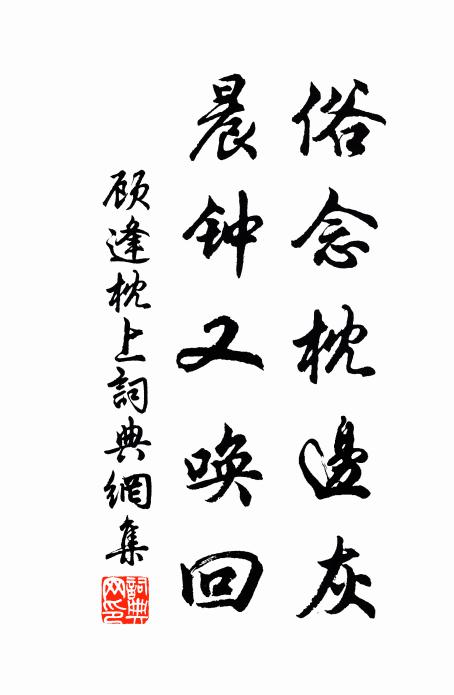 俗念枕邊灰
晨钟又唤回
顾逢枕上詞典網集
詞典网印